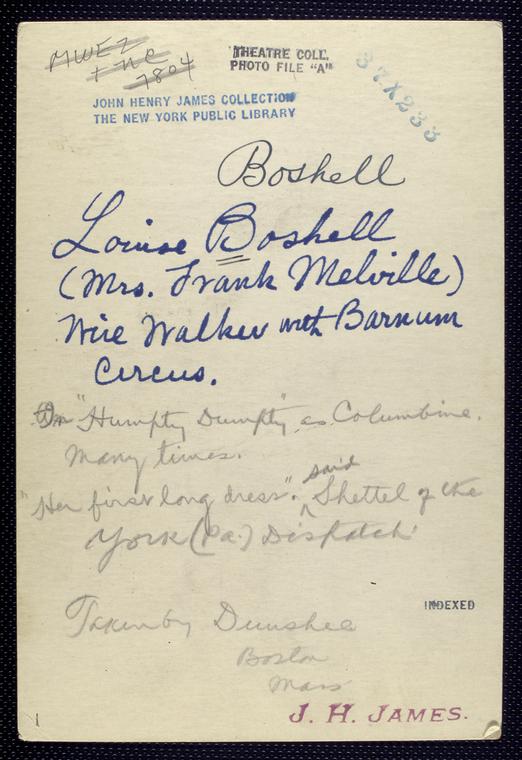 MWEZ
+ n c
7804
THEATRE COLL.
PHOTO FILE "A"
37X233
JOHN HENRY JAMES COLLECTION
THE NEW YORK PUBLIC LIBRARY
Boshell
Louise Boshell
(Mrs. Frank Melville)
Wire Walker with Barnum
Circus.
In "Humpty Dumpty" as Columbine.
Many times.
"Her first long dress". said Shettel of the
York (Pa.) Dispatch
INDEXED
Taken by Dunshee
Boston
Mass
J. H. JAMES.
1